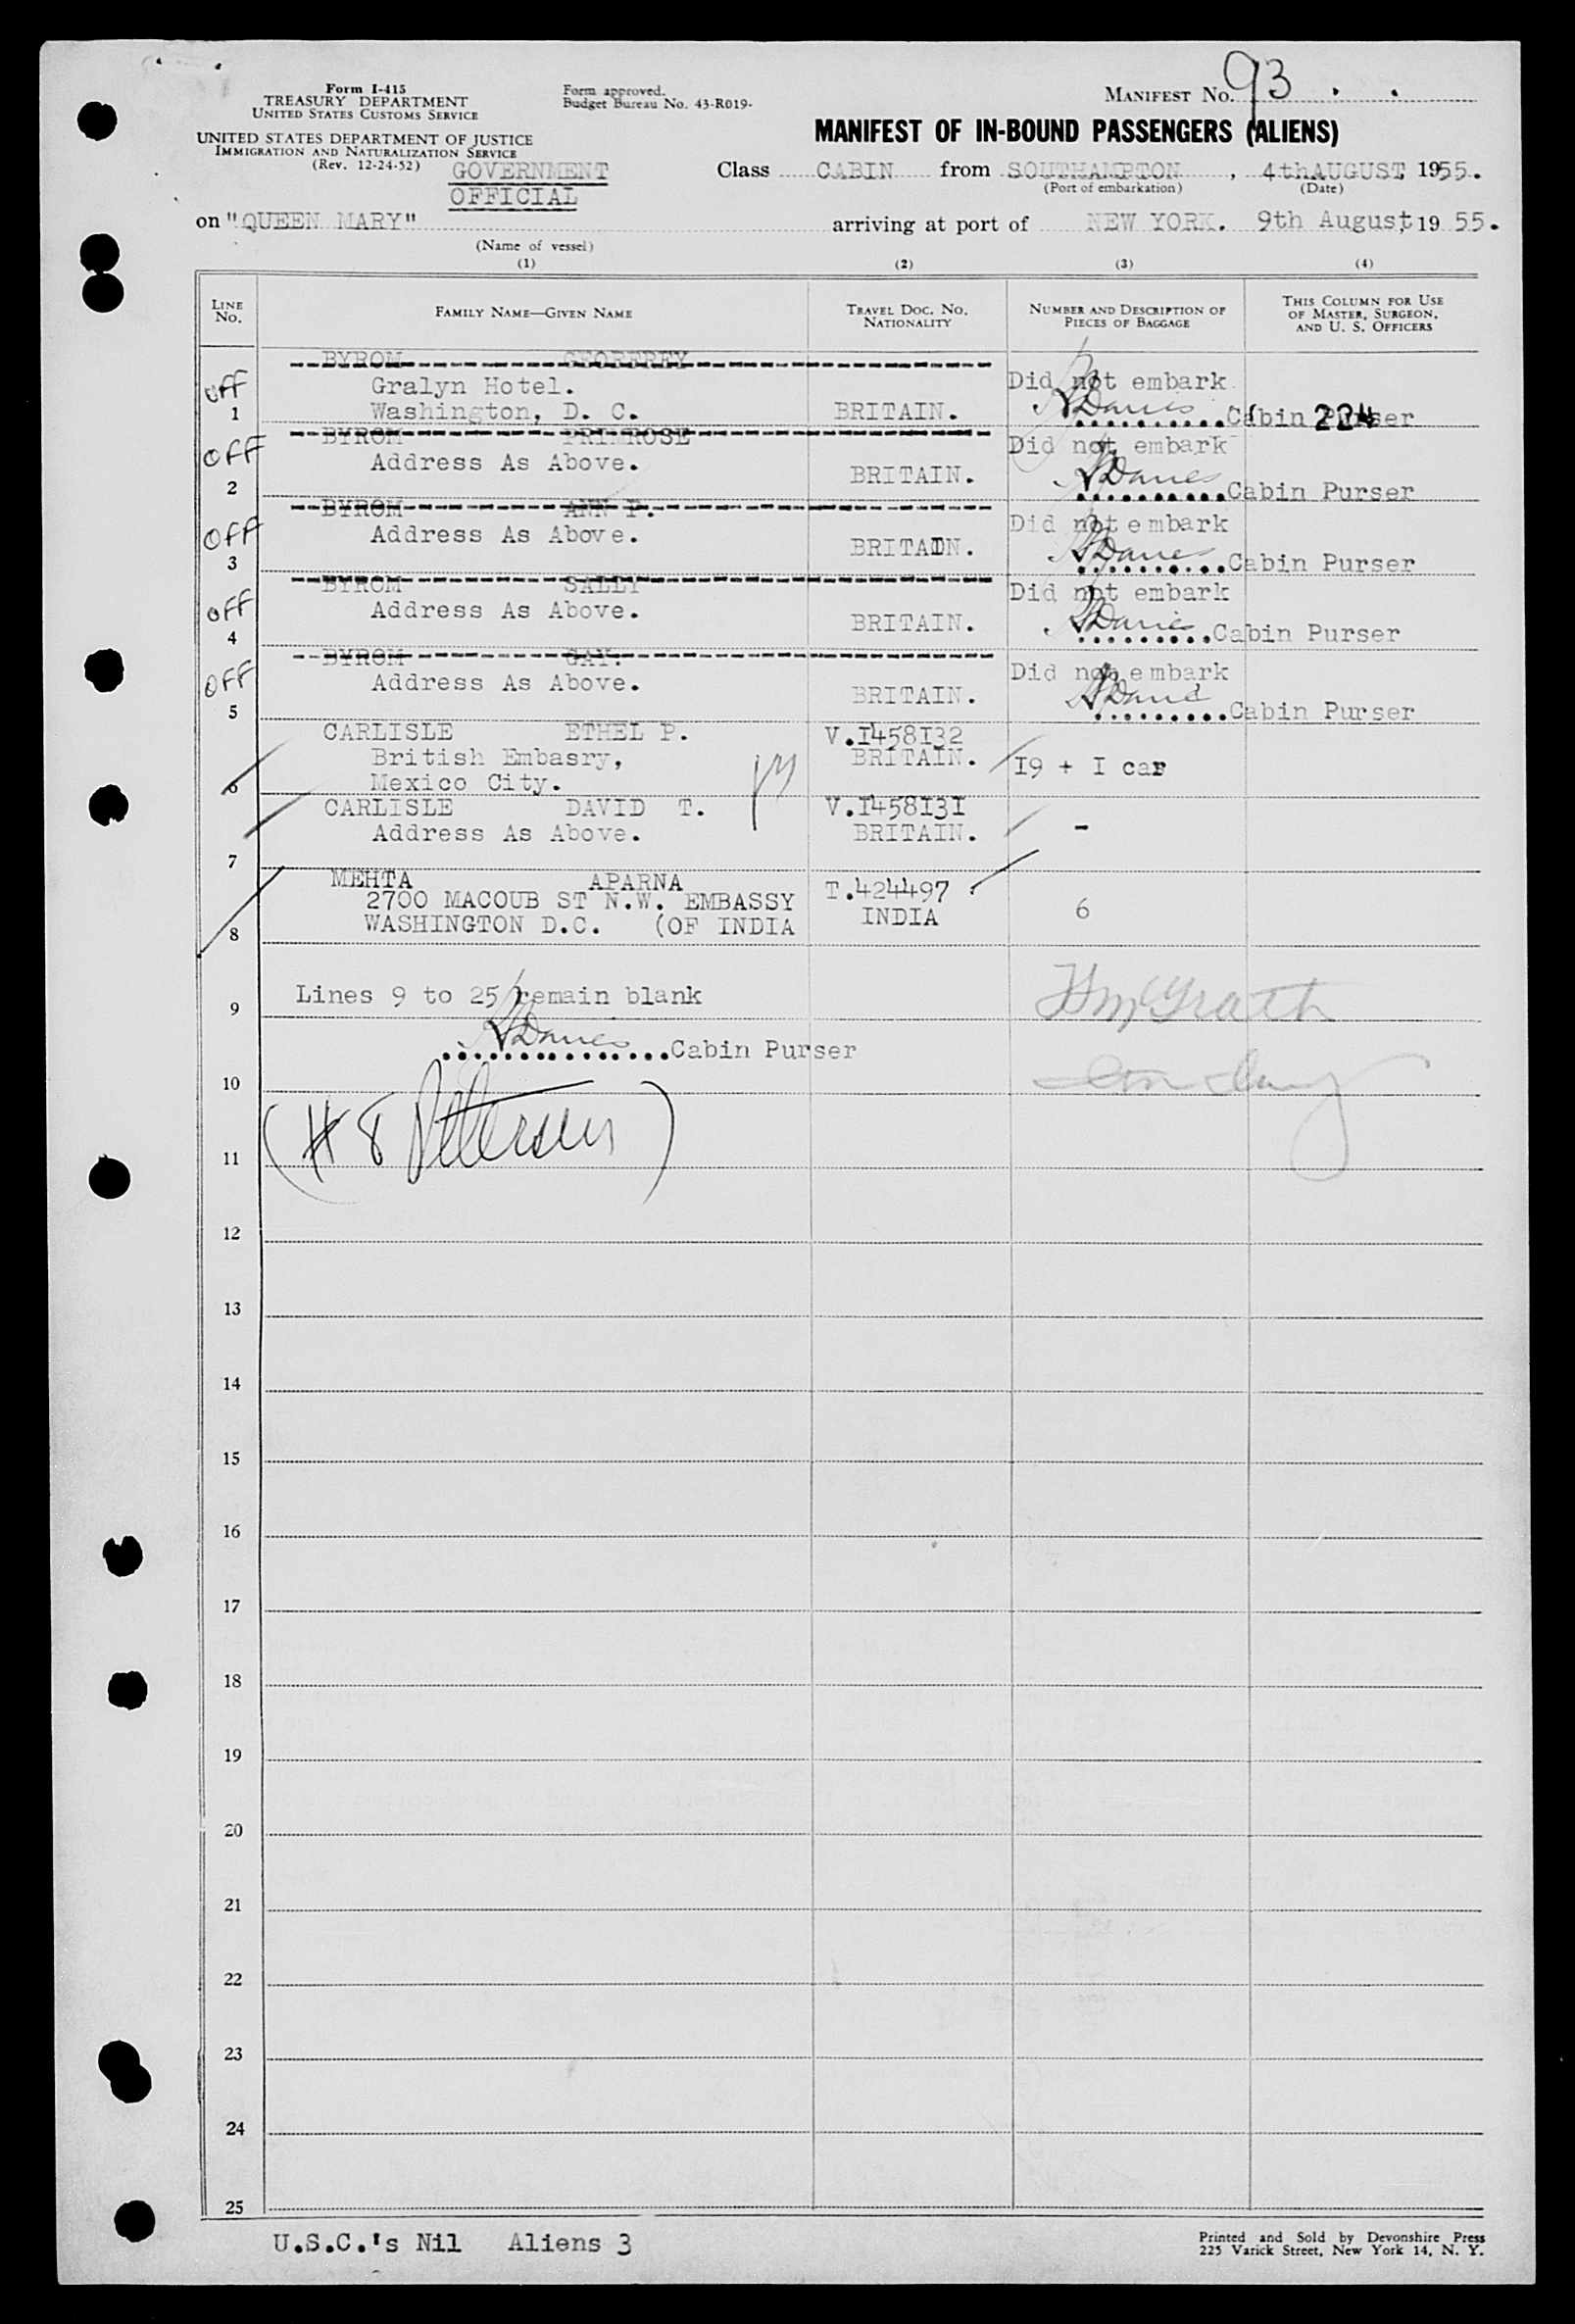 Form I-415
TREASURY DEPARTMENT
UNITED STATES CUSTOMS SERVICE
UNITED STATES DEPARTMENT OF JUSTICE
IMMIGRATION AND NATURALIZATION SERVICE
(Rev. 12-24-52)
Form approved.
Budget Bureau No. 43-R019-
MANIFEST No. 93
MANIFEST OF IN-BOUND PASSENGERS (ALIENS)
GOVERNMENT
OFFICIAL
Class CABIN from SOUTHAMPTON , 4th AUGUST, 1955.
(Port of embarkation) (Date)
on "QUEEN MARY" arriving at port of NEW YORK. 9th August, 1955.
(Name of vessel)
(1) (2) (3) (4)
LINE No. FAMILY NAME—GIVEN NAME TRAVEL DOC. NO. NATIONALITY NUMBER AND DESCRIPTION OF PIECES OF BAGGAGE THIS COLUMN FOR USE OF MASTER, SURGEON, AND U. S. OFFICERS
BYROM GEOFFREY
off Gralyn Hotel. Did not embark
1 Washington, D. C. BRITAIN. Davies Cabin Purser 224
BYROM PRIMROSE Did not embark
off Address As Above.
2 BRITAIN. Davies Cabin Purser
BYROM ANN P. Did not embark
off Address As Above.
3 BRITAIN. Davies Cabin Purser
BYROM SALLY Did not embark
off Address As Above.
4 BRITAIN. Davies Cabin Purser
BYROM GAY. Did not embark
off Address As Above.
5 BRITAIN. Davies Cabin Purser
CARLISLE ETHEL P. V.I458I32
British Embasry, BRITAIN. I9 + I car
6 Mexico City.
CARLISLE DAVID T. V.I458I3I
Address As Above. BRITAIN. -
7
MEHTA APARNA T.424497
2700 MACOUB ST N.W. EMBASSY INDIA 6
8 WASHINGTON D.C. (OF INDIA
9 Lines 9 to 25 remain blank McGrath
Davies Cabin Purser
10
11 (# 8 Petersen)
12
13
14
15
16
17
18
19
20
21
22
23
24
25
U.S.C.'s Nil Aliens 3
Printed and Sold by Devonshire Press
225 Varick Street, New York 14, N. Y.